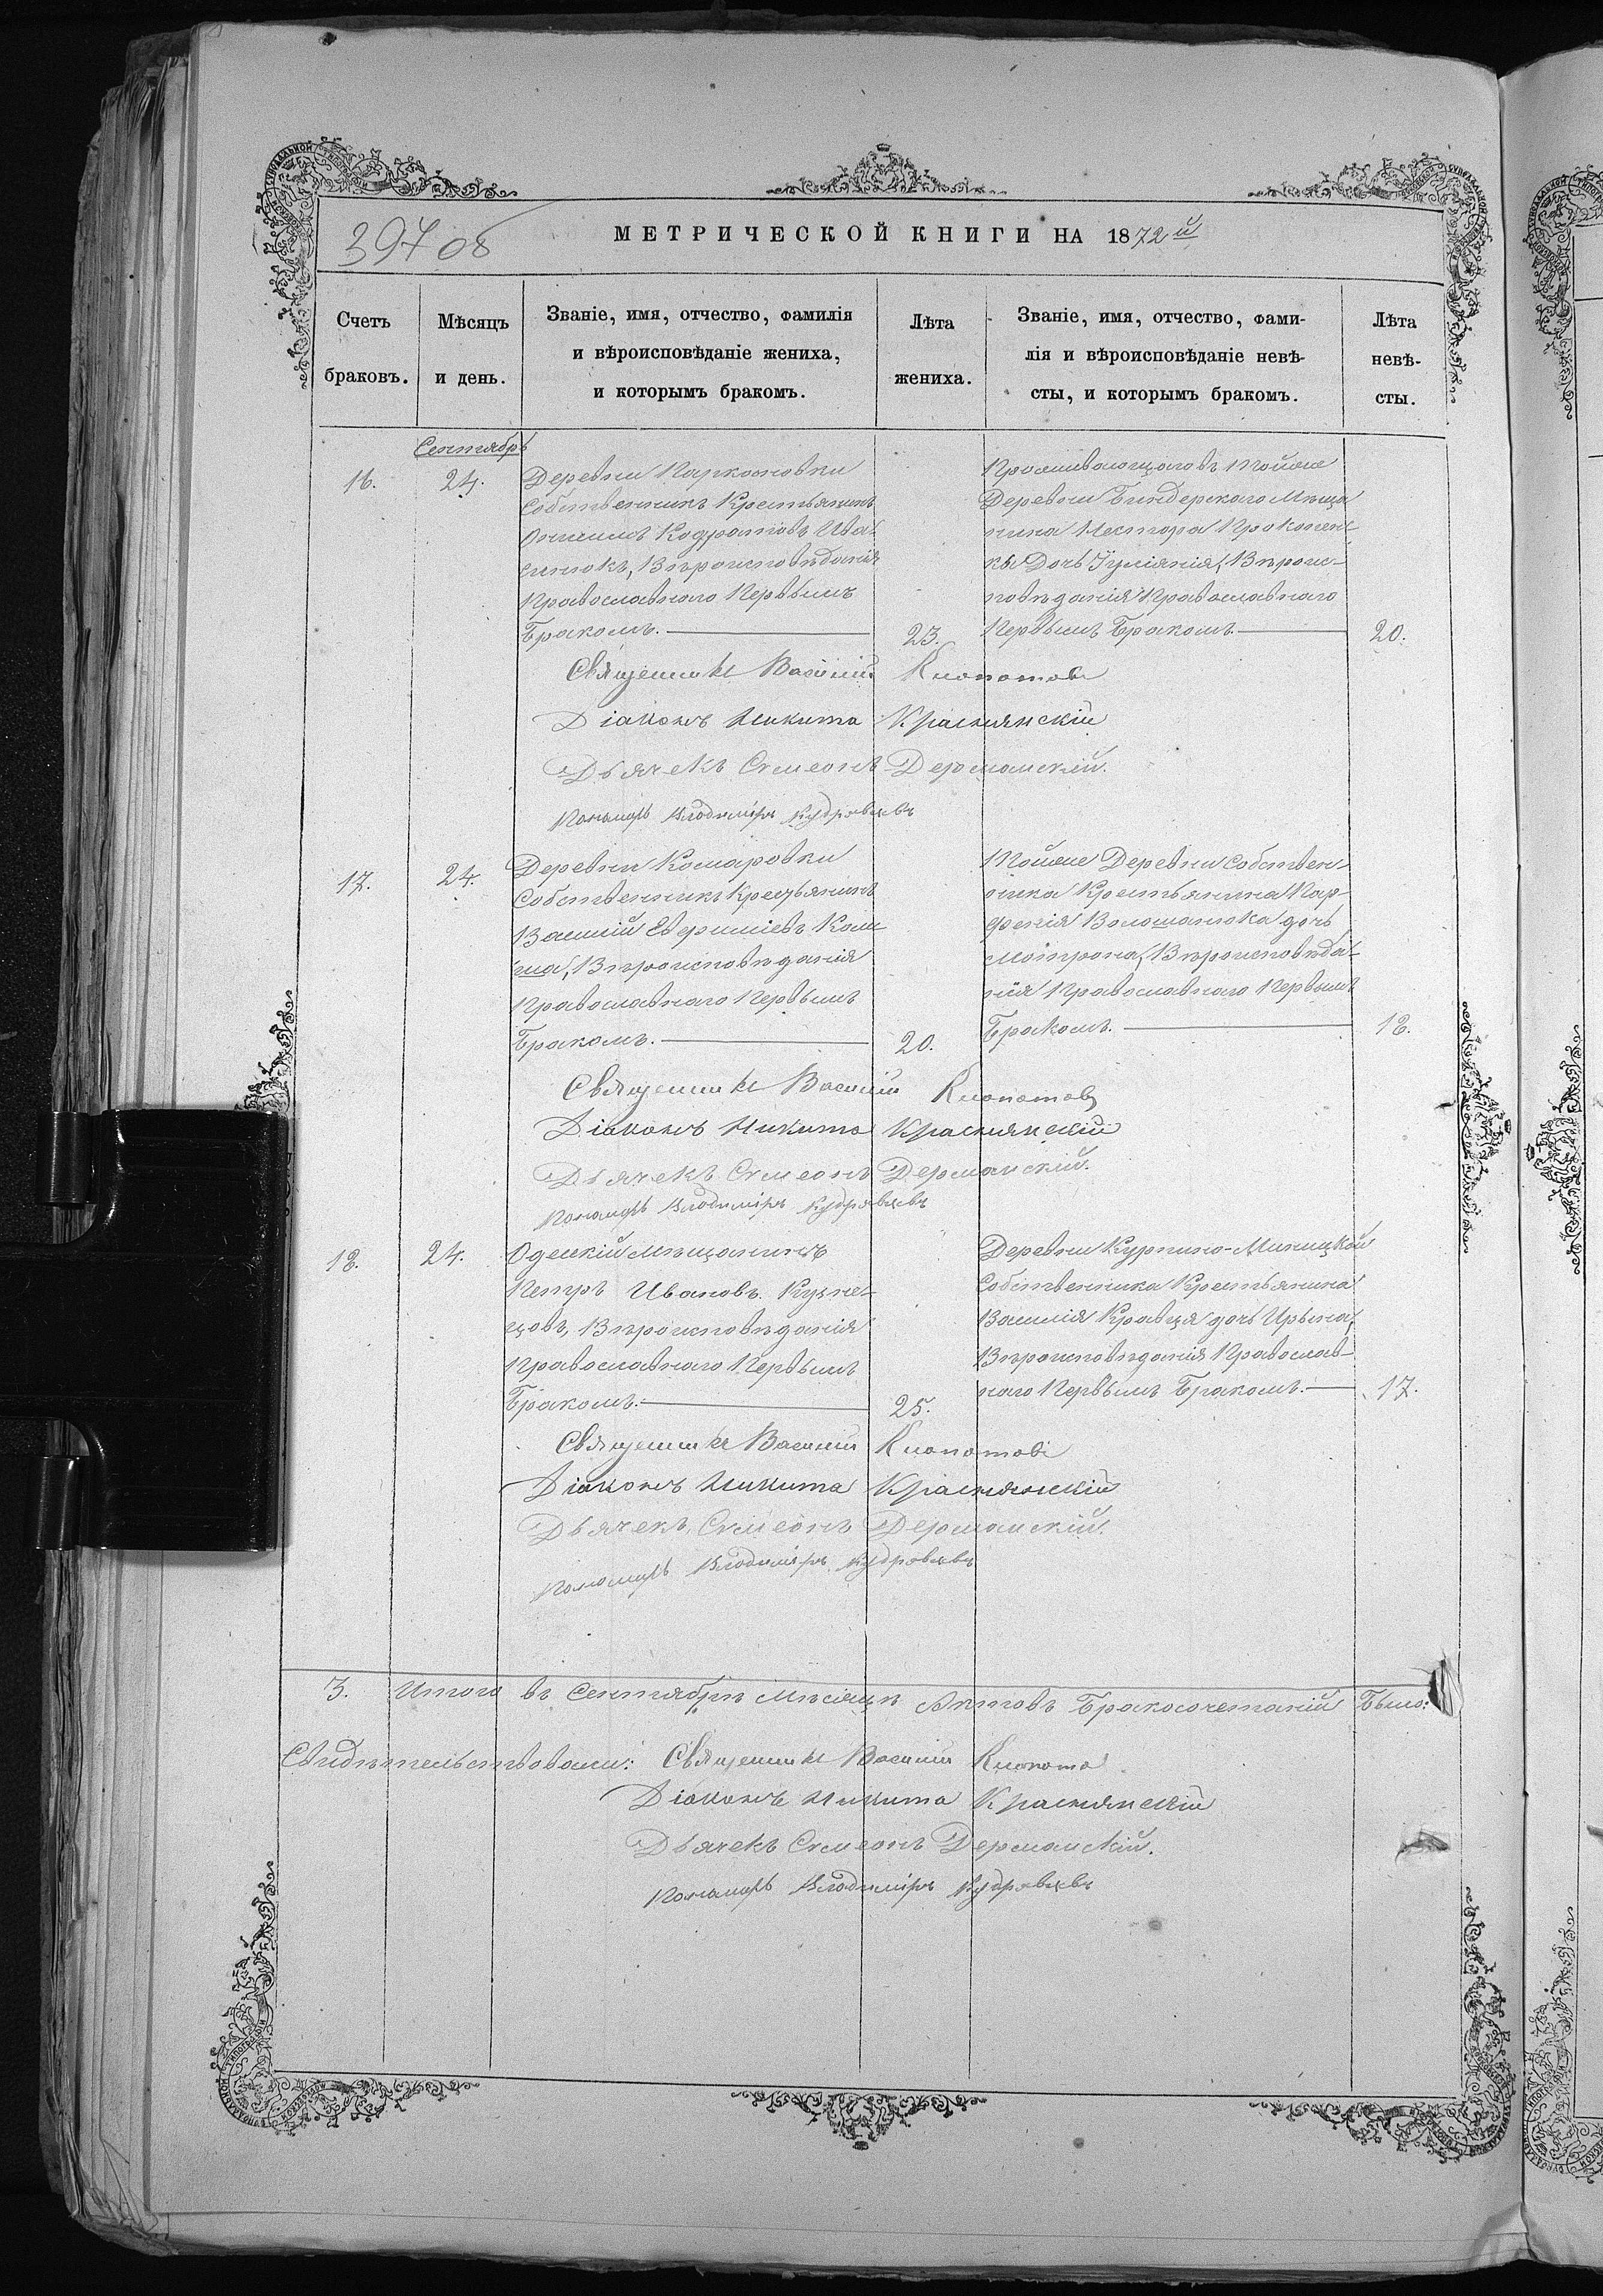 397 об
МЕТРИЧЕСКОЙ КНИГИ НА 1872й
Счетъ браковъ.
Мѣсяцъ и день.
Званіе, имя, отчество, фамилія
и вѣроисповѣданіе жениха,
и которымъ бракомъ.
Лѣта
жениха.
Званіе, имя, отчество, фами-
лія и вѣроисповѣданіе невѣ-
сты, и которымъ бракомъ.
Лѣта
невѣ-
сты.
Сентябрь
16.
24.
Деревни Парконовки
Собственникъ Крестьянинъ
Кодратовъ Ива-
Вѣроисповѣданія
Православнаго Первымъ
Бракомъ.
23.
Проживающаго въ тойже
Деревни Бендерскаго Мѣща
нина Нестора Прокопен-
ка Дочь Іуліянія, Вѣроис-
повѣданія Православнаго
Первымъ Бракомъ.
20.
Священникъ Василій Клопотовъ
Діаконъ Никита Краснянскій
Дьячекъ Симеонъ Дерманскій.
Пономарь Владиміръ Кудрявцевъ
17.
24.
Деревни Комаровки
Собственникъ Крестьянинъ
Василій Евфиміевъ Кош
ма, Вѣроисповѣданія
Православнаго Первымъ
Бракомъ.
20.
Тойже Деревни Собствен-
ника Крестьянина Пар-
фенія Волошанюка дочь
Мотрона, Вѣроисповѣда-
нія Православнаго Первымъ
Бракомъ.
18.
Священникъ Василій Клопотовъ
Діаконъ Никита Краснянскій
Дьячекъ Симеонъ Дерманскій.
Пономарь Владиміръ Кудрявцевъ
18.
24.
Одесскій мѣщанинъ
Петръ Ивановъ Кузне-
цовъ, Вѣроисповѣданія
Православнаго Первымъ
Бракомъ.
25.
Деревни Курпино-Миницкой
Собственника Крестьянина
Василія Кравця дочь Ирына,
Вѣроисповѣданія Православ-
наго Первымъ Бракомъ.
17.
Священникъ Василій Клопотовъ
Діаконъ Никита Краснянскій
Дьячекъ Симеонъ Дерманскій.
Пономарь Владиміръ Кудрявцевъ
3. Итого въ Сентябрѣ Мѣсяцѣ Актовъ Бракосочетаній Было:
Свидѣтельствовали: Священникъ Василій Клопотовъ
Діаконъ Никита Краснянскій
Дьячекъ Симеонъ Дерманскій.
Пономарь Владиміръ Кудрявцевъ